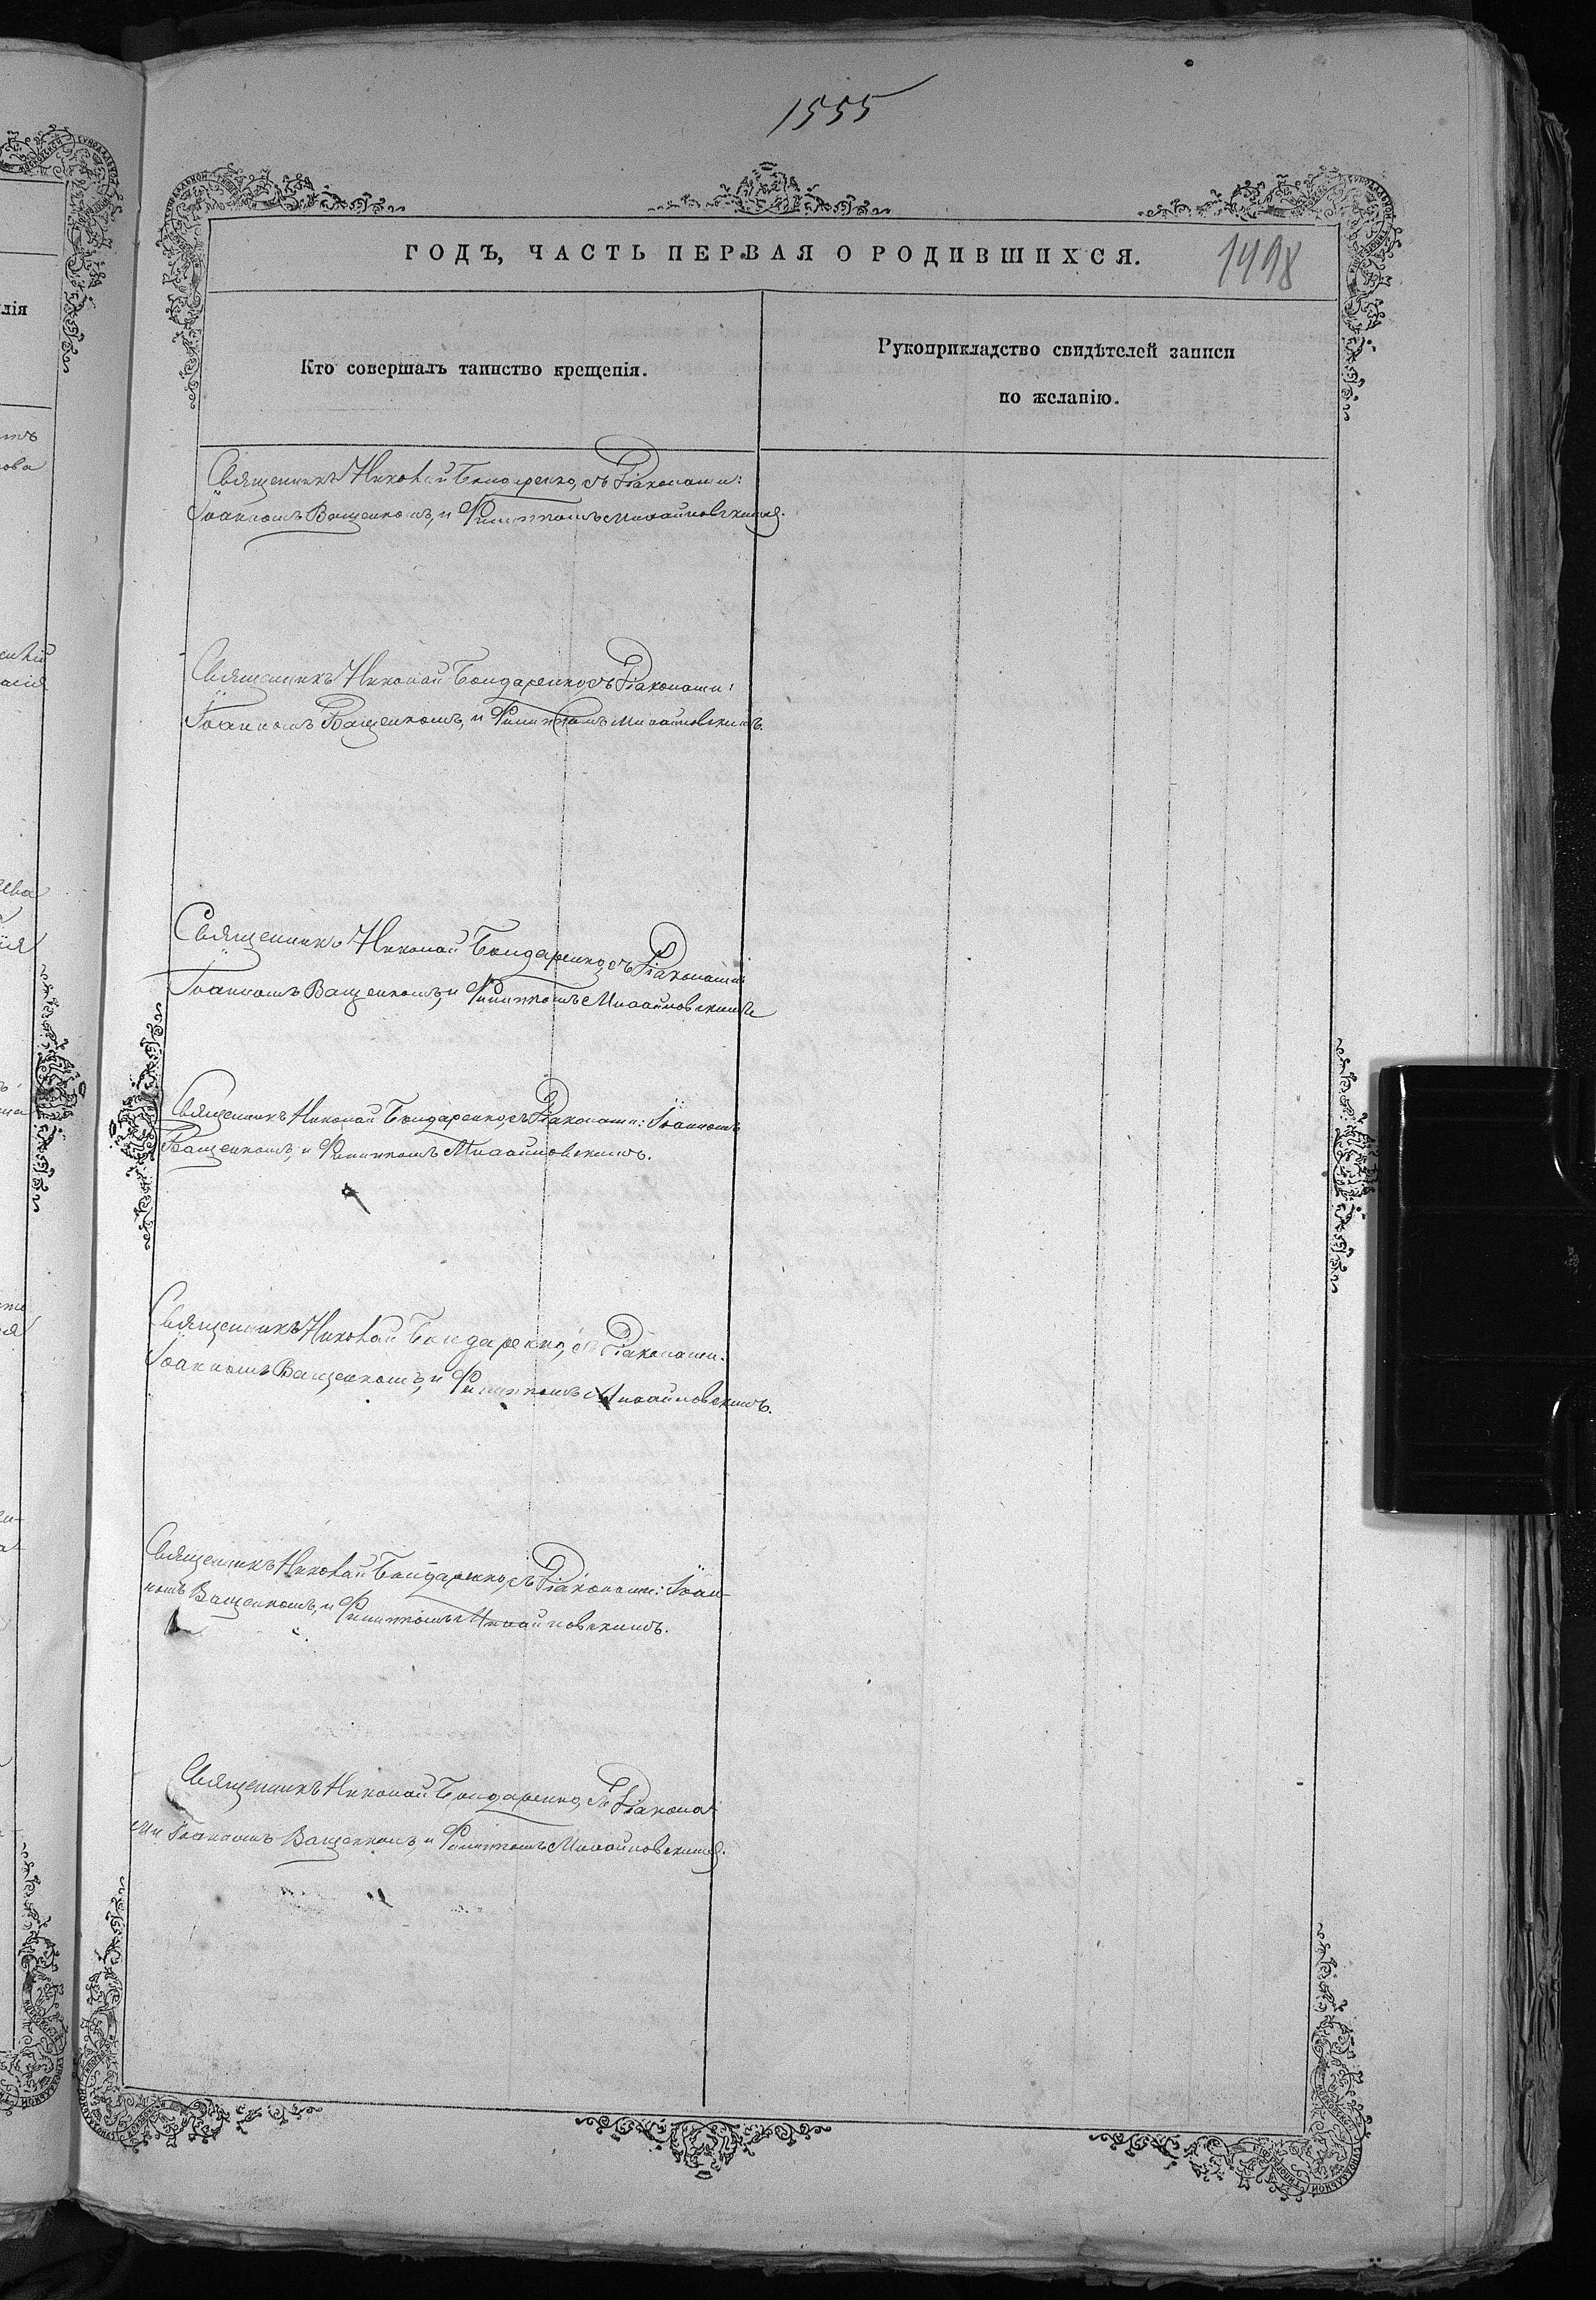 1555
ГОДЪ, ЧАСТЬ ПЕРВАЯ О РОДИВШИХСЯ.
1498
Кто совершалъ таинство крещенія.
Рукоприкладство свидѣтелей записи
по желанію.
Священникъ Николай Бондаренко, съ Діаконами:
Іоанномъ Ващенкомъ, и Филиппомъ Михайловскимъ.
Священникъ Николай Бондаренко, съ Діаконами:
Іоанномъ Ващенкомъ, и Филиппомъ Михайловскимъ.
Священникъ Николай Бондаренко, съ Діаконами
Іоанномъ Ващенкомъ, и Филиппомъ Михайловскимъ
Священникъ Николай Бондаренко, съ Діаконами: Іоанномъ
Ващенкомъ, и Филиппомъ Михайловскимъ.
Священникъ Николай Бондаренко, съ Діаконами.
Іоанномъ Ващенкомъ, и Филиппомъ Михайловскимъ.
Священникъ Николай Бондаренко, съ Діаконами: Іоан-
номъ Ващенкомъ, и Филиппомъ Михайловскимъ.
Священникъ Николай Бондаренко, съ Діакона-
ми Іоанномъ Ващенкомъ, и Филиппомъ Михайловскимъ.